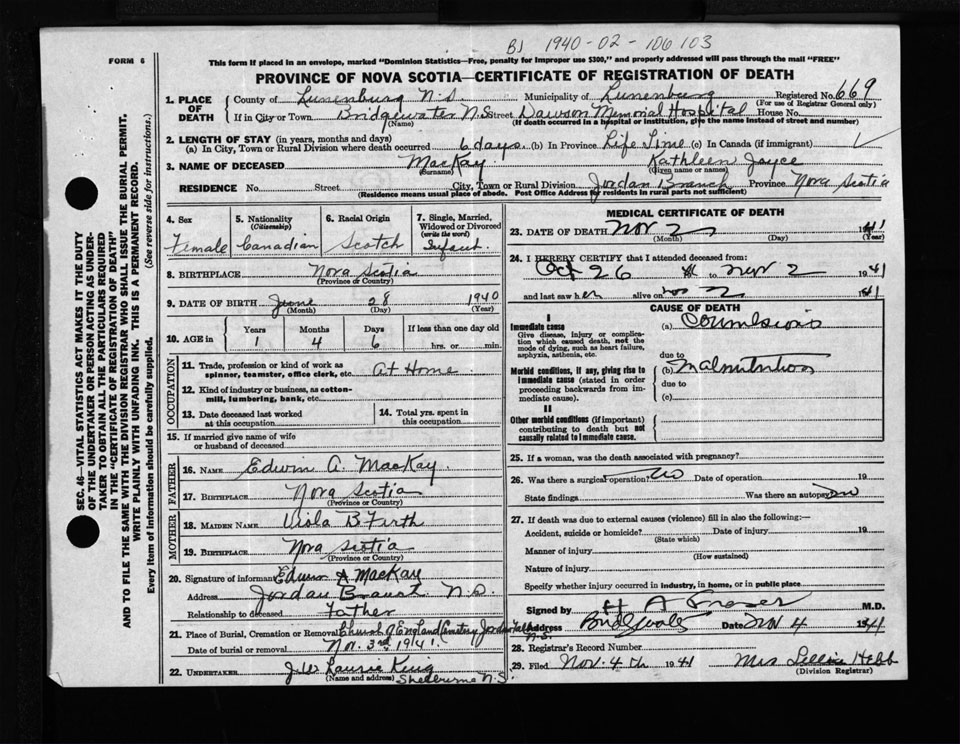 BJ 1940-02-106103
FORM 6
This form if placed in an envelope, marked "Dominion Statistics—Free, penalty for improper use $300," and properly addressed will pass through the mail "FREE"
PROVINCE OF NOVA SCOTIA—CERTIFICATE OF REGISTRATION OF DEATH
1. PLACE OF DEATH County of Lunenburg N.S. Municipality of Lunenburg Registered No. 669
(For use of Registrar General only)
If in City or Town Bridgewater N.S. Street Dawson Memorial Hospital House No.
(Name) (If death occurred in a hospital or institution, give the name instead of street and number)
2. LENGTH OF STAY (in years, months and days)
(a) In City, Town or Rural Division where death occurred 6 days (b) In Province Life Time (c) In Canada (if immigrant)
3. NAME OF DECEASED MacKay Kathleen Joyce
(Surname) (Given name or names)
RESIDENCE No. Street City, Town or Rural Division Jordan Branch Province Nova Scotia
(Residence means usual place of abode. Post Office Address for residents in rural parts not sufficient)
4. Sex Female
5. Nationality (Citizenship) Canadian
6. Racial Origin Scotch
7. Single, Married, Widowed or Divorced (write the word) Infant.
8. BIRTHPLACE Nova Scotia
(Province or Country)
9. DATE OF BIRTH June 28 1940
(Month) (Day) (Year)
10. AGE in Years 1 Months 4 Days 6 If less than one day old hrs. or min.
OCCUPATION
11. Trade, profession or kind of work as spinner, teamster, office clerk, etc. At Home
12. Kind of industry or business, as cotton-mill, lumbering, bank, etc.
13. Date deceased last worked at this occupation
14. Total yrs. spent in this occupation
15. If married give name of wife or husband of deceased
FATHER
16. NAME Edwin A. MacKay.
17. BIRTHPLACE Nova Scotia
(Province or Country)
MOTHER
18. MAIDEN NAME Viola B. Firth
19. BIRTHPLACE Nova Scotia
(Province or Country)
20. Signature of informant Edwin A MacKay
Address Jordan Branch N.S.
Relationship to deceased Father
21. Place of Burial, Cremation or Removal Church of England Cemetery Jordan Falls N.S.
Date of burial or removal Nov. 3rd 1941.
22. UNDERTAKER J.W. Laurie King
(Name and address) Shelburne N.S.
MEDICAL CERTIFICATE OF DEATH
23. DATE OF DEATH Nov 2 1941
(Month) (Day) (Year)
24. I HEREBY CERTIFY that I attended deceased from:
Oct 26 to Nov 2 1941
and last saw her alive on Nov 2 1941
CAUSE OF DEATH
I
Immediate cause
Give disease, injury or complication which caused death, not the mode of dying, such as heart failure, asphyxia, asthenia, etc.
(a) Convulsions
due to
Morbid conditions, if any, giving rise to immediate cause (stated in order proceeding backwards from immediate cause).
(b) Malnutrition
due to
(c)
II
Other morbid conditions (if important) contributing to death but not causally related to immediate cause.
25. If a woman, was the death associated with pregnancy?
26. Was there a surgical operation? No Date of operation 19
State findings Was there an autopsy? No
27. If death was due to external causes (violence) fill in also the following:—
Accident, suicide or homicide? Date of injury 19
(State which)
Manner of injury
(How sustained)
Nature of injury
Specify whether injury occurred in industry, in home, or in public place
Signed by H A Fraser M.D.
Address Bridgewater Date Nov 4 1941
28. Registrar's Record Number
29. Filed Nov. 4th 1941 Mrs Lillie Hebb
(Division Registrar)
SEC. 46—VITAL STATISTICS ACT MAKES IT THE DUTY
OF THE UNDERTAKER OR PERSON ACTING AS UNDER-
TAKER TO OBTAIN ALL THE PARTICULARS REQUIRED
IN THE "CERTIFICATE OF REGISTRATION OF DEATH"
AND TO FILE THE SAME WITH THE DIVISION REGISTRAR WHO SHALL ISSUE THE BURIAL PERMIT.
WRITE PLAINLY WITH UNFADING INK. THIS IS A PERMANENT RECORD.
Every item of information should be carefully supplied. (See reverse side for instructions.)